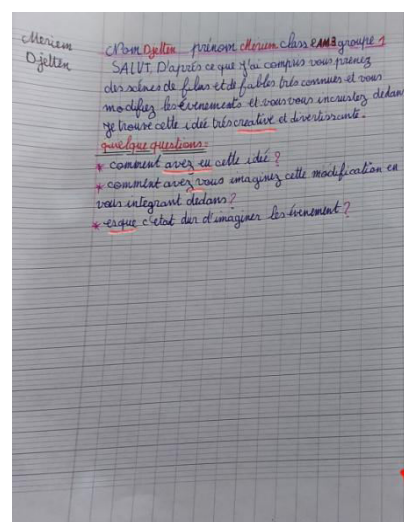 Meriem
Djelten
Nom Djelten prénom Meriem class EAM3 groupe 1
SALUT, D'après ce que j'ai compris vous prenez
des scènes de films et de fables très connues et vous
modifiez les évenements et vous vous incrustez dedans
je trouve cette idée très creative et divertissante.
quelque questions:
* comment avez eu cette idée ?
* comment avez vous imaginez cette modification en
vous integrant dedans ?
* esque c'etait dur d'imaginer les évenement ?